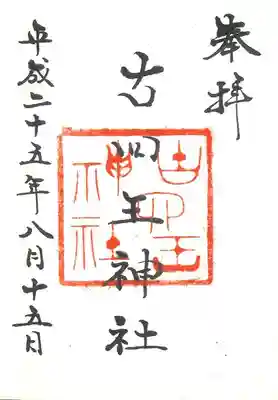 奉拝
古四王神社
古四王
神社
平成二十五年八月十五日